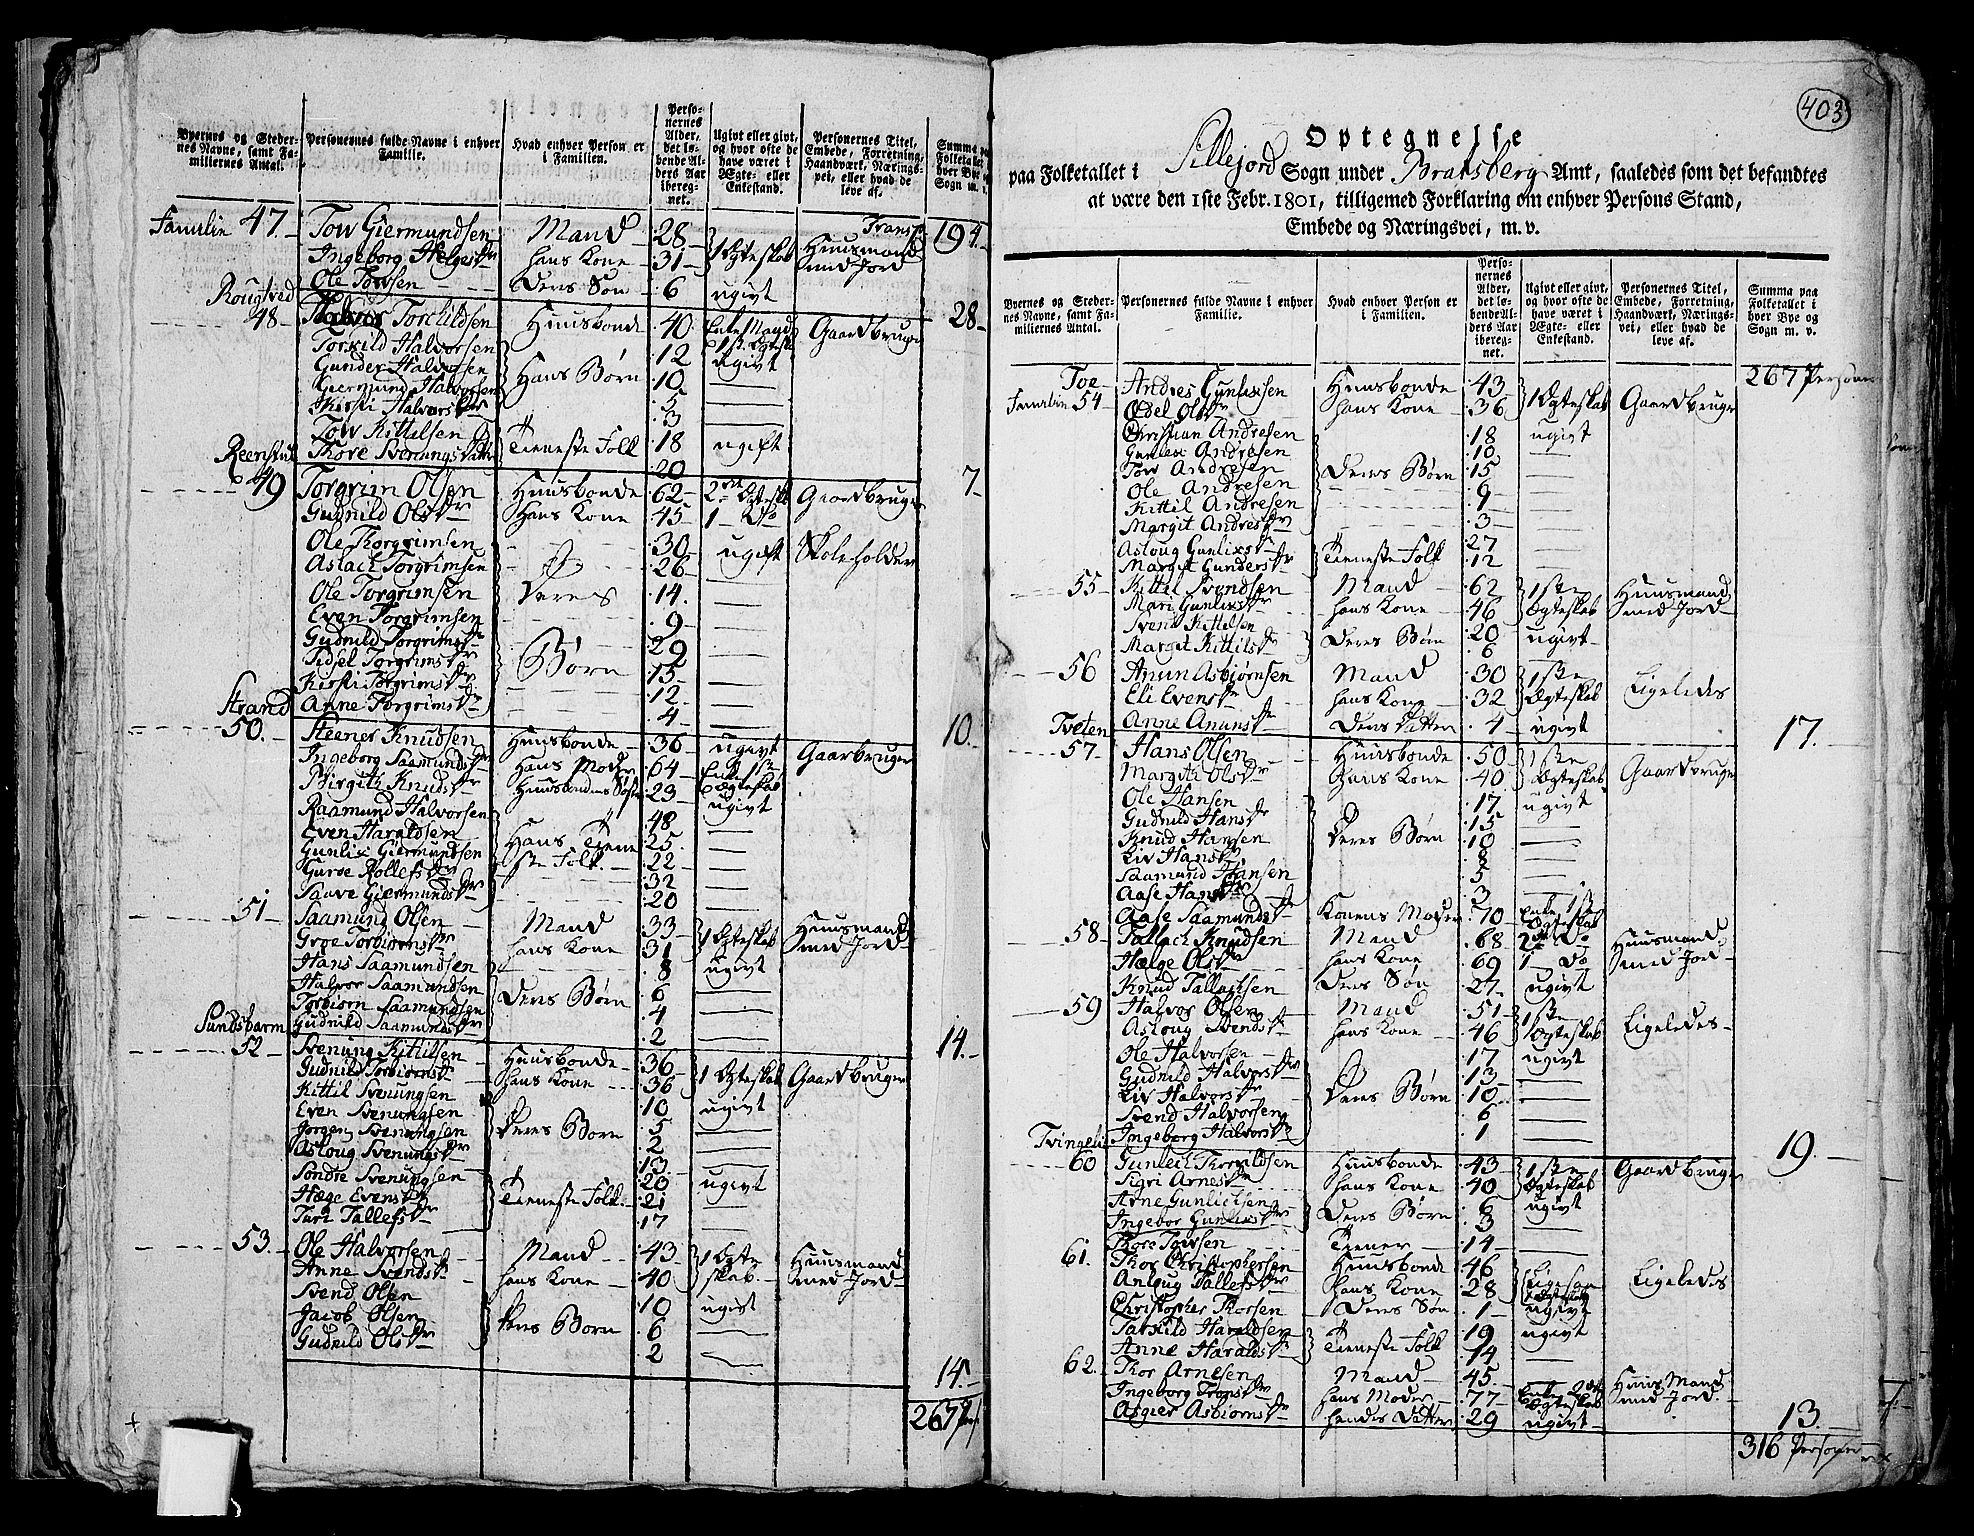 Byernes og Steder-nes Navne, samt Fa-miliernes Antal. | Personernes fulde Navne i enhver Familie. | Hvad enhver Person er i Familien. | Perso-nernes Alder, det lø-bende Al-ders Aar ibereg-net. | Ugivt eller givt, og hvor ofte de have været i Ægte- eller Enkestand. | Personernes Titel, Embede, Forretning, Haandværk, Nærings-vei, eller hvad de leve af. | Summa paa Folketallet hver Bye Sogn m. v.
Transp. 194.
Familie 47. Tow Giermundsen Mand 28 1 Ægteskab Huusmand
Ingeborg Helgesdr hans Kone 31 med Jord
Ole Towsen Deres Søn 6 ugivt
Rougtved 28
48 Torchildsen Huusbonde 40 Enke Mand Gaardbruger
Torkild Halvorsen 12 ugivt
Gunder Halvorsen Hans Børn 10
Giermund Halvorsen 5
Kirsti Halvorsdr 3
Tow Kittelsen Tieneste Folk 18 ugift
Thore Svenungsdatter 20
7
49 Torgrim Olsen Huusbonde 62 2det Ægtesk Gaardbruger
Gudnild Olsdr Hans Kone 45 1 Do
Ole Thorgrimsen 30 ugift Skoleholder
Aslach Torgrimsen 26
Ole Torgrimsen Deres 14
Even Torgrimsen 9
Gudnild Torgrimsdr 29
Sidsel Torgrimsdr Børn 15
Kirsti Torgrimsdr 12
Anne Torgrimsdr 4
Strand 10.
50. Steener Knudsen Huusbonde 36 ugivt Gaarbruger
Ingeborg Saamundsdr Hans Moder 64 Enke 1ste
Birgith Knudsdr Huusbondens Søster 23 Ægteskab ugivt
Raamund Halvorsen 48
Even Haraldsen Hans Tiene 25
Gunlix Giermundsen ste Folk 22
Guroe Rollefsdr 32
Saave Giermundsdr 20
51 Saamund Olsen Mand 33 1 Ægteskab Huusmand
Groe Torbiornsdr hans Kone 31 med Jord
Hans Saamundsen 8 ugivt
Halvor Saamundsen Deres Børn 6
Torbiorn Saamundsen 4
Gudnild Saamundsdr 2
Sundsbarm 14.
52 Svenung Kittilsen Huusbonde 36 1 Ægteskab Gaardbruger
Gudnild Torbiornsdr hans Kone 36
Kittil Svenungsen 10 ugivt
Even Svenungsen Deres Børn 5
Jørgen Svenungsen 2
Asloug Svenungsdr 13
Sondre Svenungsen 20 ugivt
Hæge Evensdr Tieneste Folk 21
Turi Tallefsdr 17
53. Ole Halvorsen Mand 43 1 Ægte Huusmand
Anne Svendsdr hans Kone 40 skab. med Jord
Svend Olsen 10 ugift
Jacob Olsen Deres Børn 6
Gudnild Olsdr 2
14.
267
403
Optegnelse
paa Folketallet i Sillejord Sogn under Bratsberg Amt, saaledes som det befandtes
at være den 1ste Febr. 1801, tilligemed Forklaring om enhver Persons Stand,
Embede og Næringsvei, m. v.
Byernes og Steder-nes Navne, samt Fa-miliernes Antal. | Personernes fulde Navne i enhver Familie. | Hvad enhver Person er i Familien. | Perso-nernes Alder, det lø-bende Al-ders Aar ibereg-net. | Ugivt eller givt, og hvor ofte de have været i Ægte- eller Enkestand. | Personernes Titel, Embede, Forretning, Haandværk, Nærings-vei, eller hvad de leve af. | Summa paa Folketallet i hver Bye og Sogn m. v.
Toe 267 Personer
Familie 54 Andres Gunlixsen Huusbonde 43 1 Ægteskab Gaardbruger
Edel Olsdr Hans Kone 36
Christian Andresen 18 ugivt
Gunlix Andresen 10
Tow Andresen Deres Børn 15
Ole Andresen 9
Kittil Andresen
Margit Andresdr 3
Asloug Gunlixsdr Tieneste Folk 27
Margit Gundersdr 12
55 Kittel Svendsen Mand 62 1ste Huusmand
Mari Gunlixsdr hans Kone 46 Ægteskab med Jord
Svend Kittilsen Deres Børn 20 ugivt
Margit Kittilsdr 6
56 Anun Asbiørnsen Mand 30 1ste Ligeledes
Eli Evensdr hans Kone 32 Ægteskab
Anne Anunsdr Deres Datter 4 ugivt
Tveten 17.
57 Hans Olsen Huusbonde 50 1ste Gaardbruger
Margith Olsdr Hans Kone 40 Ægteskab
Ole Hansen 17 ugivt
Gudnild Hansdr 15
Knud Hansen Deres Børn 10
Liv Hansdr 8
Saamund Hansen 5
Aase Hansdr 3
Aase Saamundsdr Konens Moder 70 Enke 1ste Ægteskab
58 Tallach Knudsen Mand 68 2det Do Huusmand
Hælge Olsdr hans Kone 69 1 Do med Jord
Knud Tallachsen Deres Søn 27 ugivt
59 Halvor Olsen Mand 51 1ste Ligeledes
Asloug Svendsdr hans Kone 46 Ægteskab
Ole Halvorsen 17 ugivt
Gudnild Halvorsdr 13
Liv Halvorsdr Deres Børn 10
Svend Halvorsen 6
Ingeborg Halvorsdr 1
19.
60 Gunleik Thorkildsen Huusbonde 43 1ste Gaardbruger
Sigri Arnesdr Hans Kone 40 Ægteskab
Arne Gunlichsen Deres Børn 8 ugivt
Ingebor Gunlixsdr 3
Thore Towsen Tiener 14
61. Thor Christophersen Huusbonde 46 Ligesaa Ligeledes
Anloug Tallefsdr Hans Kone 28
Christopher Thorsen Deres Søn 1 ugivt
Tarkild Haraldsen Tieneste Folk 19 ugivt
Anne Haraldsdr 14
62. Thor Arnesen Mand 45 Huus Mand
Ingeborg Tronsdr Hans Moder 77 Enke Ægteskab med Jord
Asgier Asbiornsdr Hendes Datter 29 ugivt
13.
316 Personer